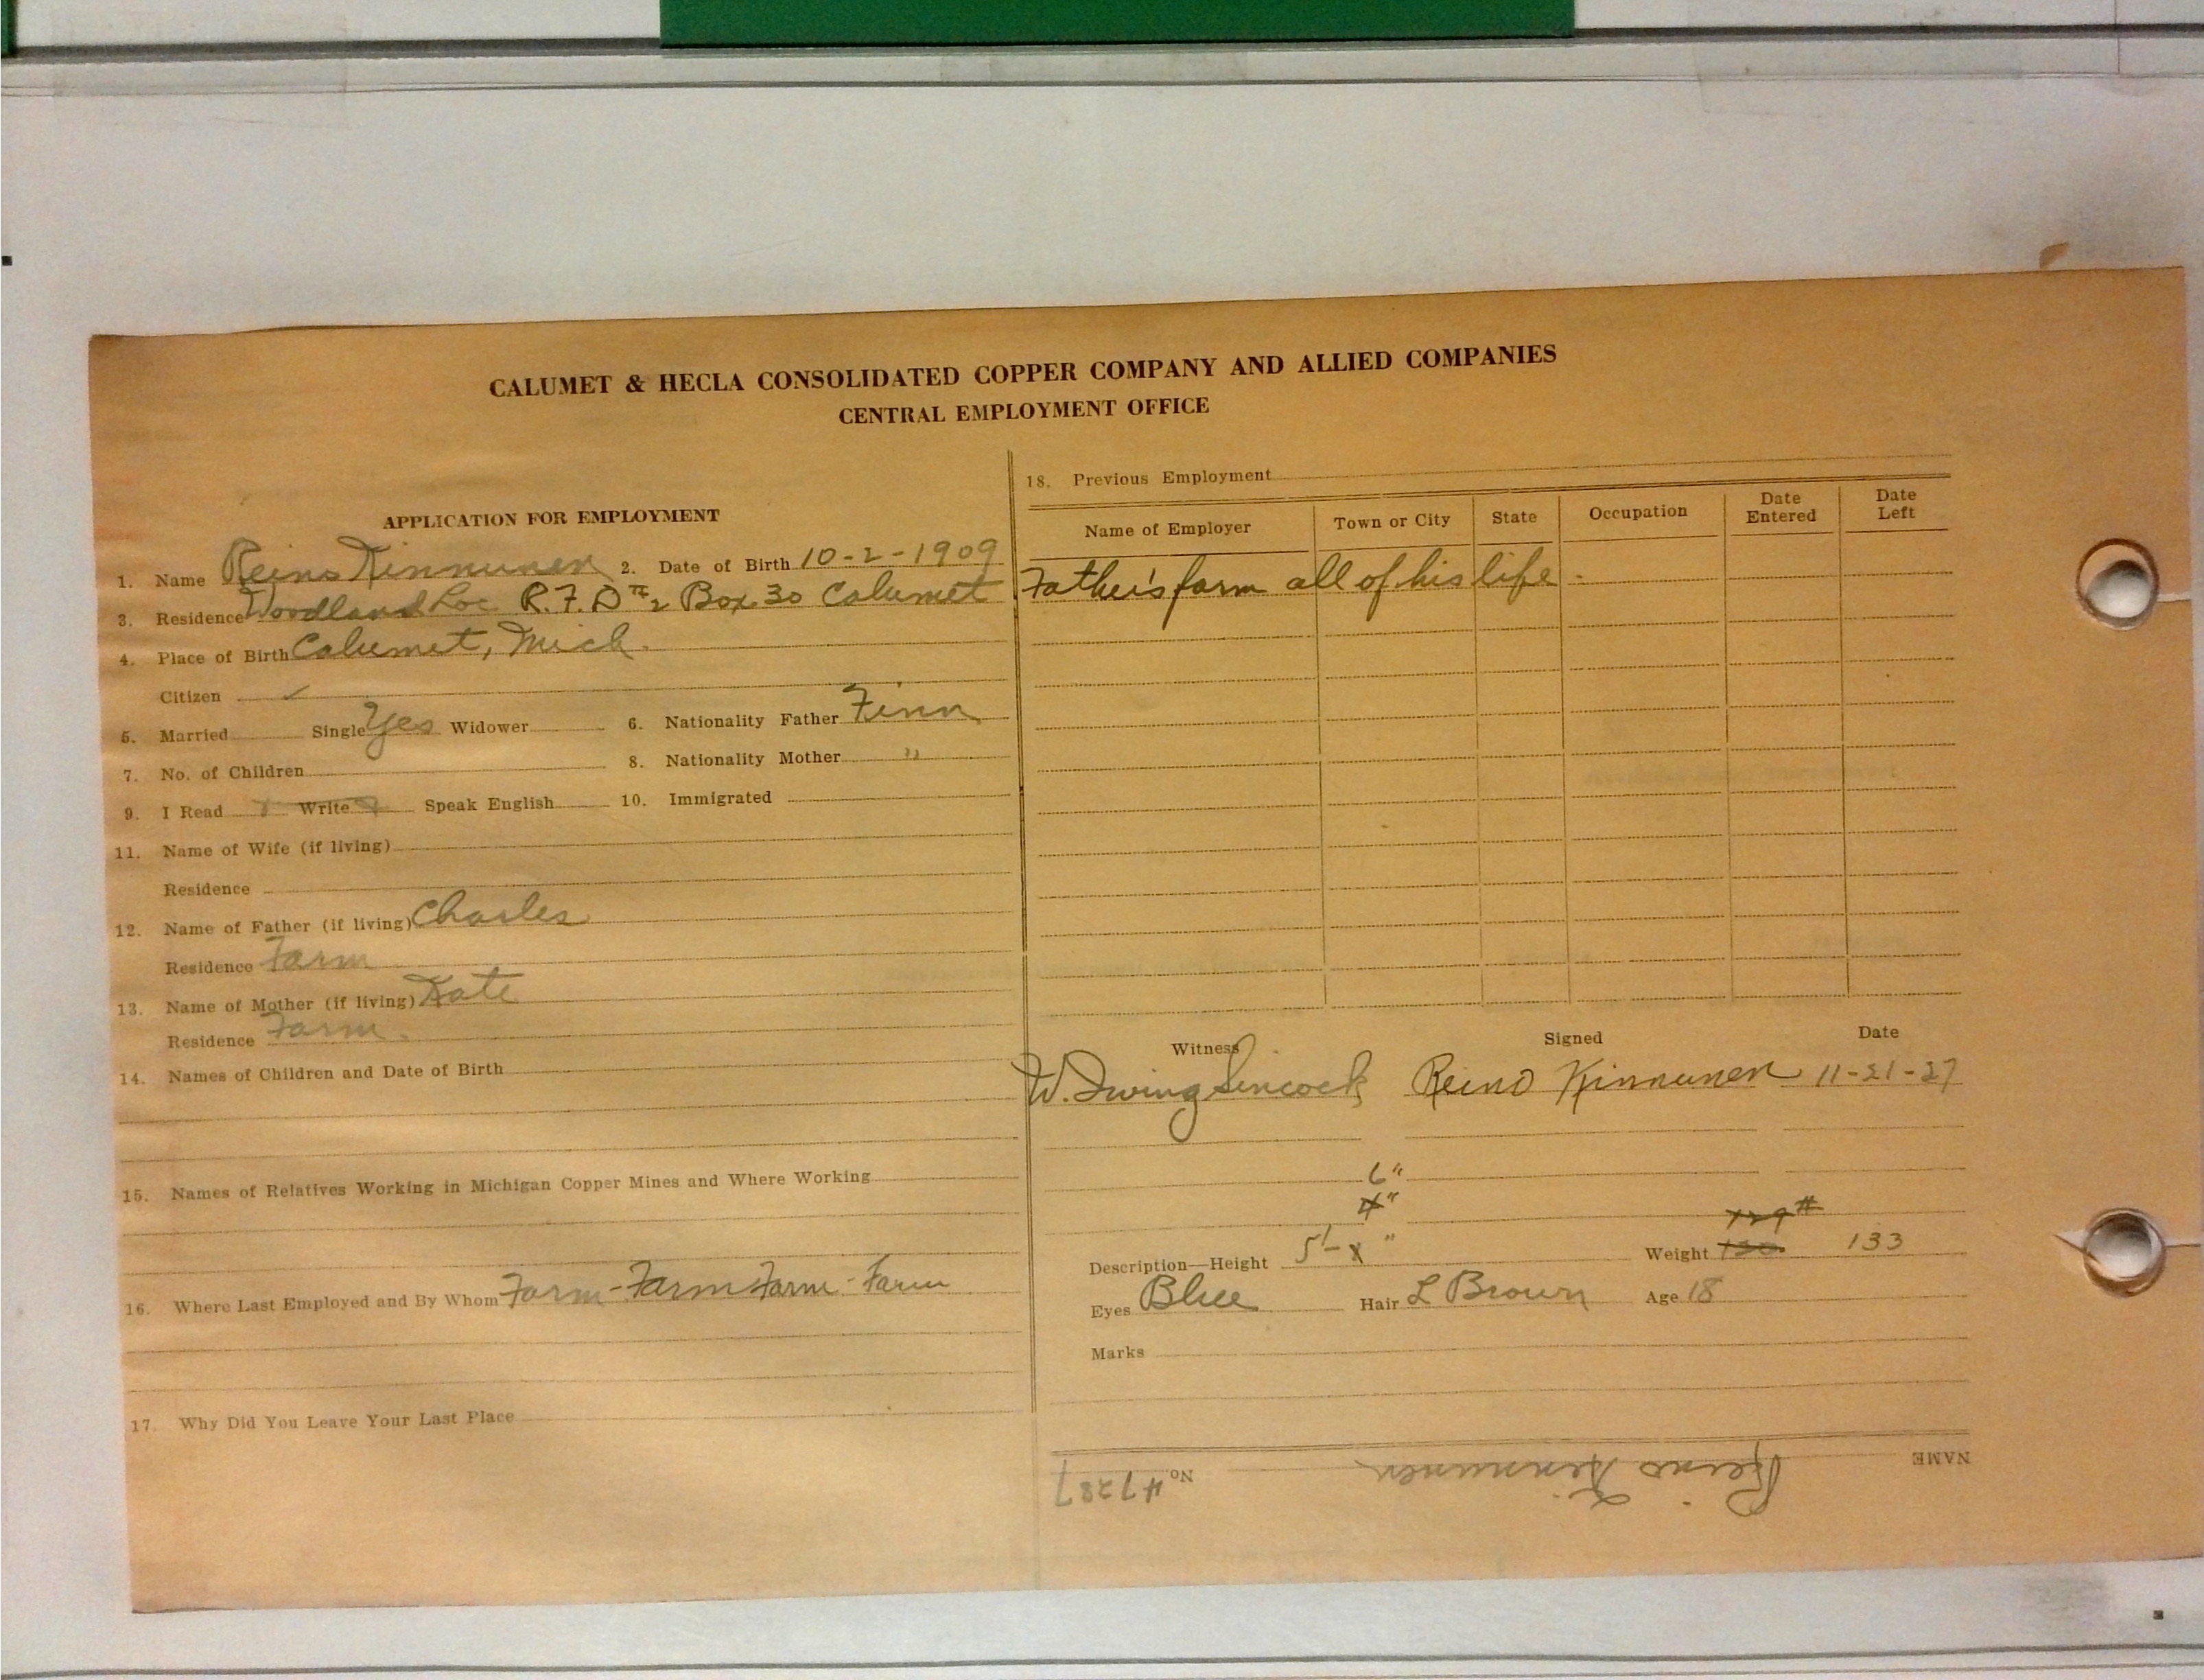 CALUMET & HECLA CONSOLIDATED COPPER COMPANY AND ALLIED COMPANIES
CENTRAL EMPLOYMENT OFFICE
APPLICATION FOR EMPLOYMENT
1. Name Reino Kinnunen 2. Date of Birth 10-2-1909
3. Residence Woodland Loc R.F.D #2 Box 30 Calumet
4. Place of Birth Calumet, Mich.
Citizen ✓
5. Married Single Yes Widower 6. Nationality Father Finn
7. No. of Children 8. Nationality Mother "
9. I Read Write Speak English 10. Immigrated
11. Name of Wife (if living)
Residence
12. Name of Father (if living) Charles
Residence Farm
13. Name of Mother (if living) Kate
Residence Farm.
14. Names of Children and Date of Birth
15. Names of Relatives Working in Michigan Copper Mines and Where Working
16. Where Last Employed and By Whom Farm - Farm Farm - Farm
17. Why Did You Leave Your Last Place
18. Previous Employment
Name of Employer Town or City State Occupation Date Entered Date Left
Father's farm all of his life -
Witness Signed Date
W. Irving Sincock Reino Kinnunen 11-21-27
6"
4"
129#
Description—Height 5'- " Weight 130 133
Eyes Blue Hair L Brown Age 18
Marks
NAME Reino Kinnunen No. #7287